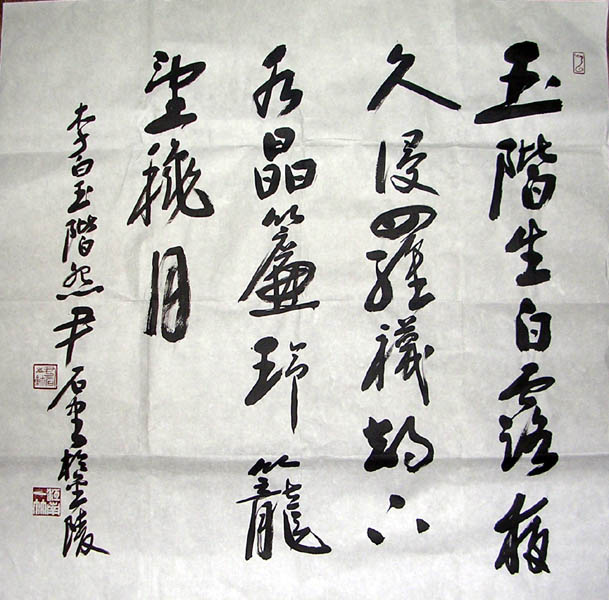 玉階生白露夜
久侵羅襪却下
水晶簾玲籠
望秋月
李白玉階怨尹石書於金陵